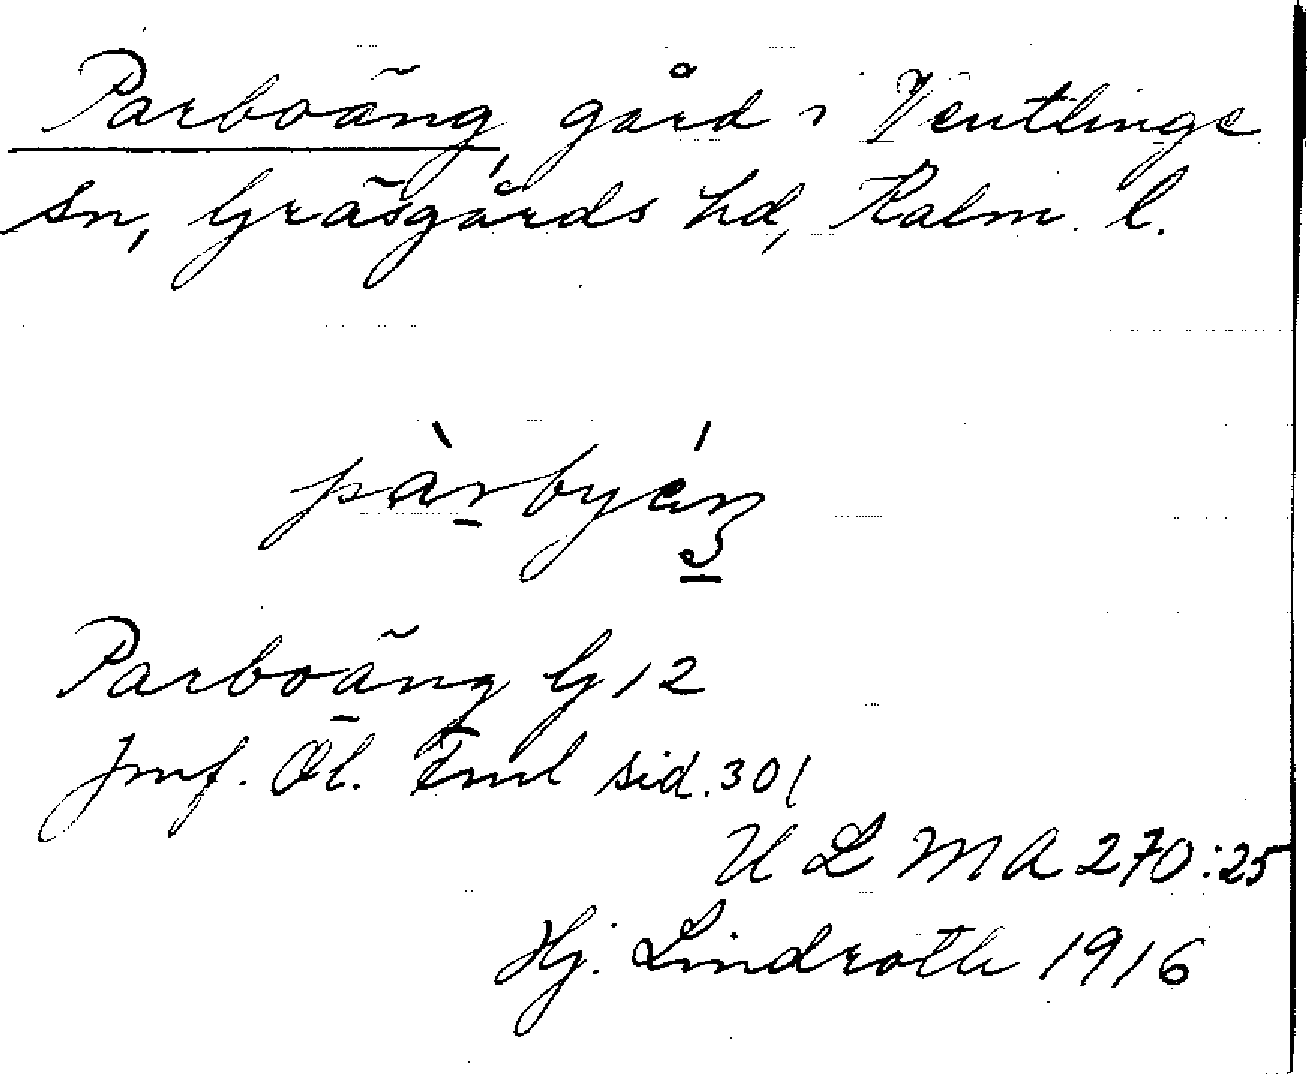 Parboäng, gård i Ventlinge
sn, Gräsgårds hd, Kalm. l.
pàrbyéŋ
Parboäng G 12
Jmf. Öl. Fml sid. 301
ULMA 270:25
Hj. Lindroth 1916